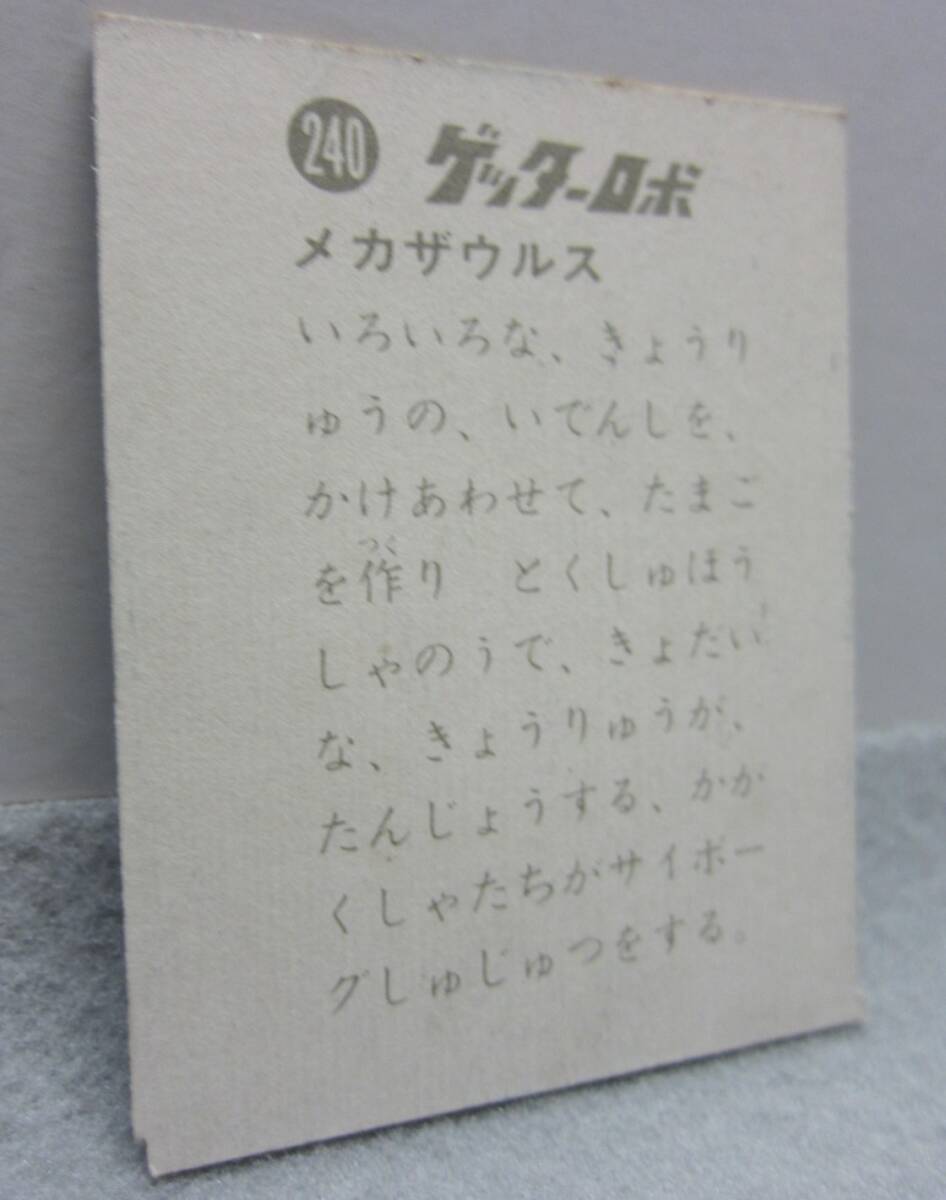 240 ゲッターロボ
メカザウルス
いろいろな、きょうり
ゅうの、いでんしを、
かけあわせて、たまご
つく
を作り　とくしゅほう
しゃのうで、きょだい
な、きょうりゅうが、
たんじょうする、かが
くしゃたちがサイボー
グしゅじゅつをする。